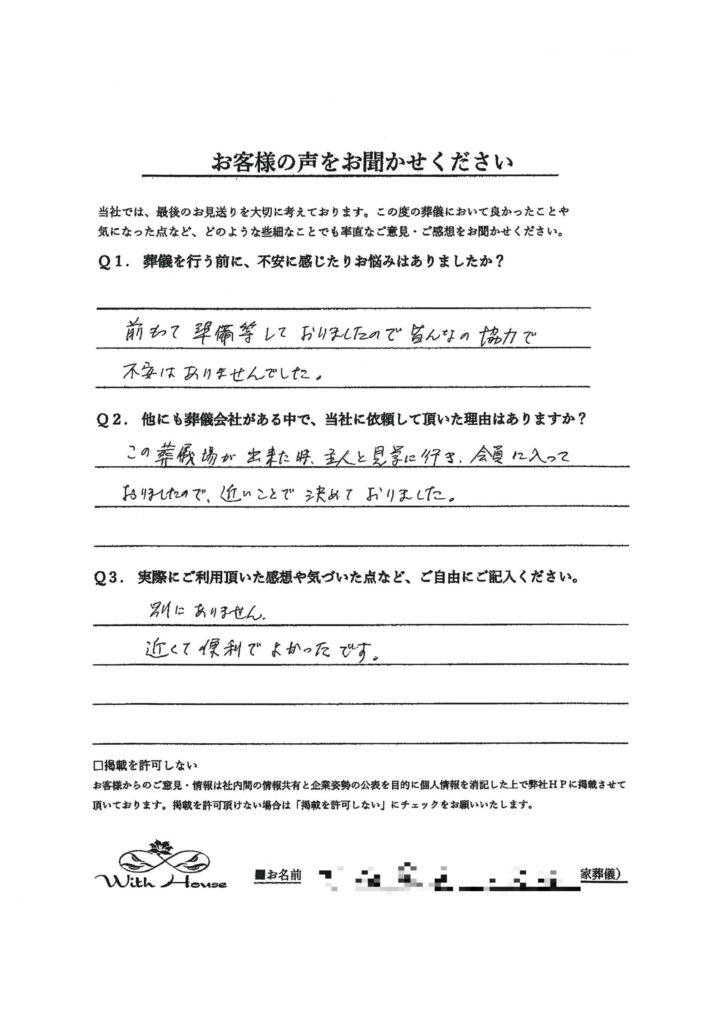 お客様の声をお聞かせください
当社では、最後のお見送りを大切に考えております。この度の葬儀において良かったことや
気になった点など、どのような些細なことでも率直なご意見・ご感想をお聞かせください。
Q1. 葬儀を行う前に、不安に感じたりお悩みはありましたか？
前もって 準備等して おりましたので 皆んなの 協力で
不安は ありませんでした。
Q2. 他にも葬儀会社がある中で、当社に依頼して頂いた理由はありますか？
この 葬儀場が 出来た時、主人と見学に行き、会員に入って
おりましたので、近いことで 決めて おりました。
Q3. 実際にご利用頂いた感想や気づいた点など、ご自由にご記入ください。
別に ありません。
近くて 便利で よかった です。
□掲載を許可しない
お客様からのご意見・情報は社内間の情報共有と企業姿勢の公表を目的に個人情報を消記した上で弊社HPに掲載させて
頂いております。掲載を許可頂けない場合は「掲載を許可しない」にチェックをお願いいたします。
With House
■お名前 家葬儀）